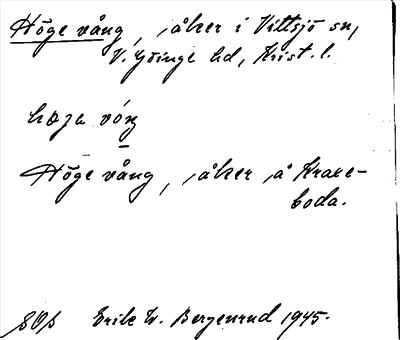 Höge vång, åker i Vittsjö sn,
V. Göinge hd, Krist. l.
høga vóŋ
Höge vång, åker å Kraxe-
boda.
Erik W. Bergenrud 1945.